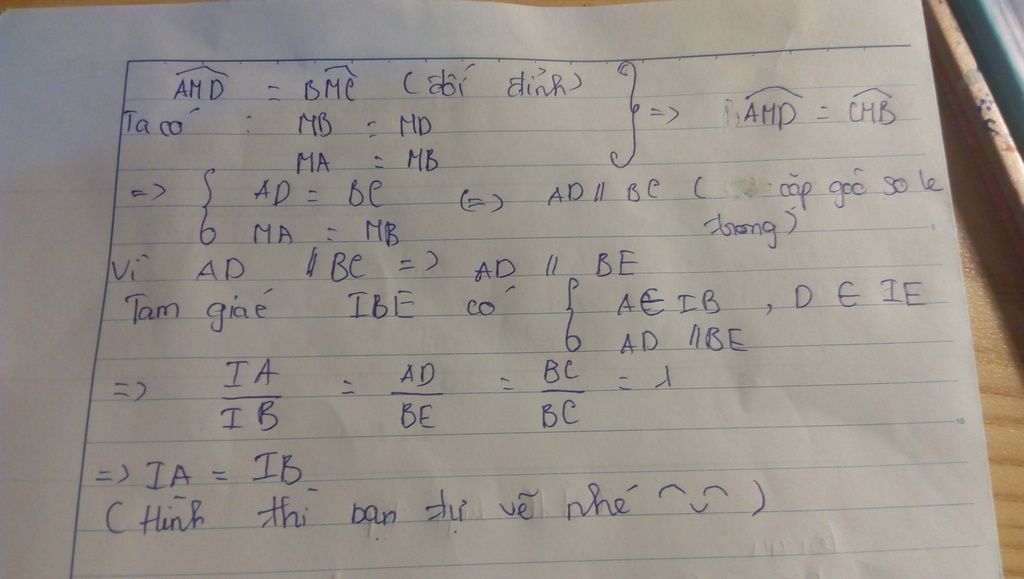 AMD = BMC (đối đỉnh)
Ta có : MB = MD => AMD = CMB
MA = MB
=> { AD = BC (=> AD // BC ( cặp góc so le
MA = MB trong)
Vì AD // BC => AD // BE
Tam giác IBE có { A ∈ IB , D ∈ IE
AD // BE
=> IA/IB = AD/BE = BC/BC = 1
=> IA = IB
(Hình thì bạn tự vẽ nhé ^◡^ )